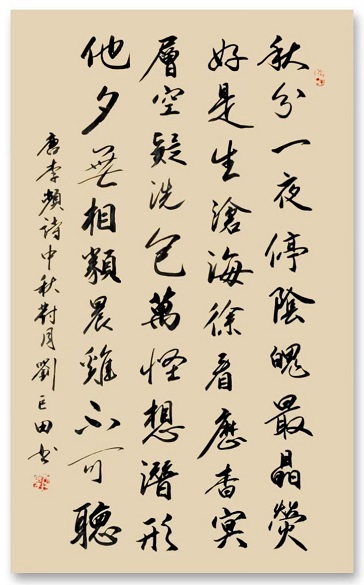 秋分一夜停陰魄最晶熒
好是生滄海徐看歷杳冥
層空疑洗色萬怪想潛形
他夕無相類晨雞不可聽
唐李頻詩中秋對月劉巨田書